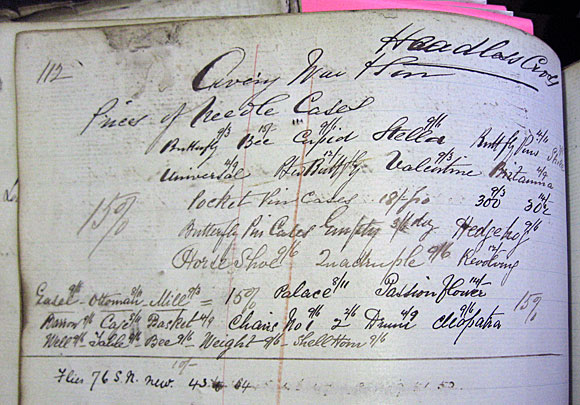 112
Headless Cross
Avery Wm & Son
Prices of Needle Cases
Butterfly 9/3 Bee 10/- Cupid 9/6 Stella 9/6 Buttfly Pins 4/10
Universal 4/9 Buttfly 12/- Valentine 9/3 Britannia 4/9
15% Pocket Pin Cases 18/- 300 9/3 302
Butterfly Pin Cases Empty 3/6 dz Hedgehog 9/6
Horse Shoe 9/6 Quadruple 9/6 Revolving 12/-
Easel 9/6 Ottoman Mill 9/3 = 15% Palace 8/11 Passion flower 14/- 15%
Cafe Basket 4/9 Chairs No 1 2 Drum 4/9 Cleopatra 9/6
Well Table Bee 9/6 Weight 9/6 Shell Horn 9/6
Flies 76 S.N. new. 43 64